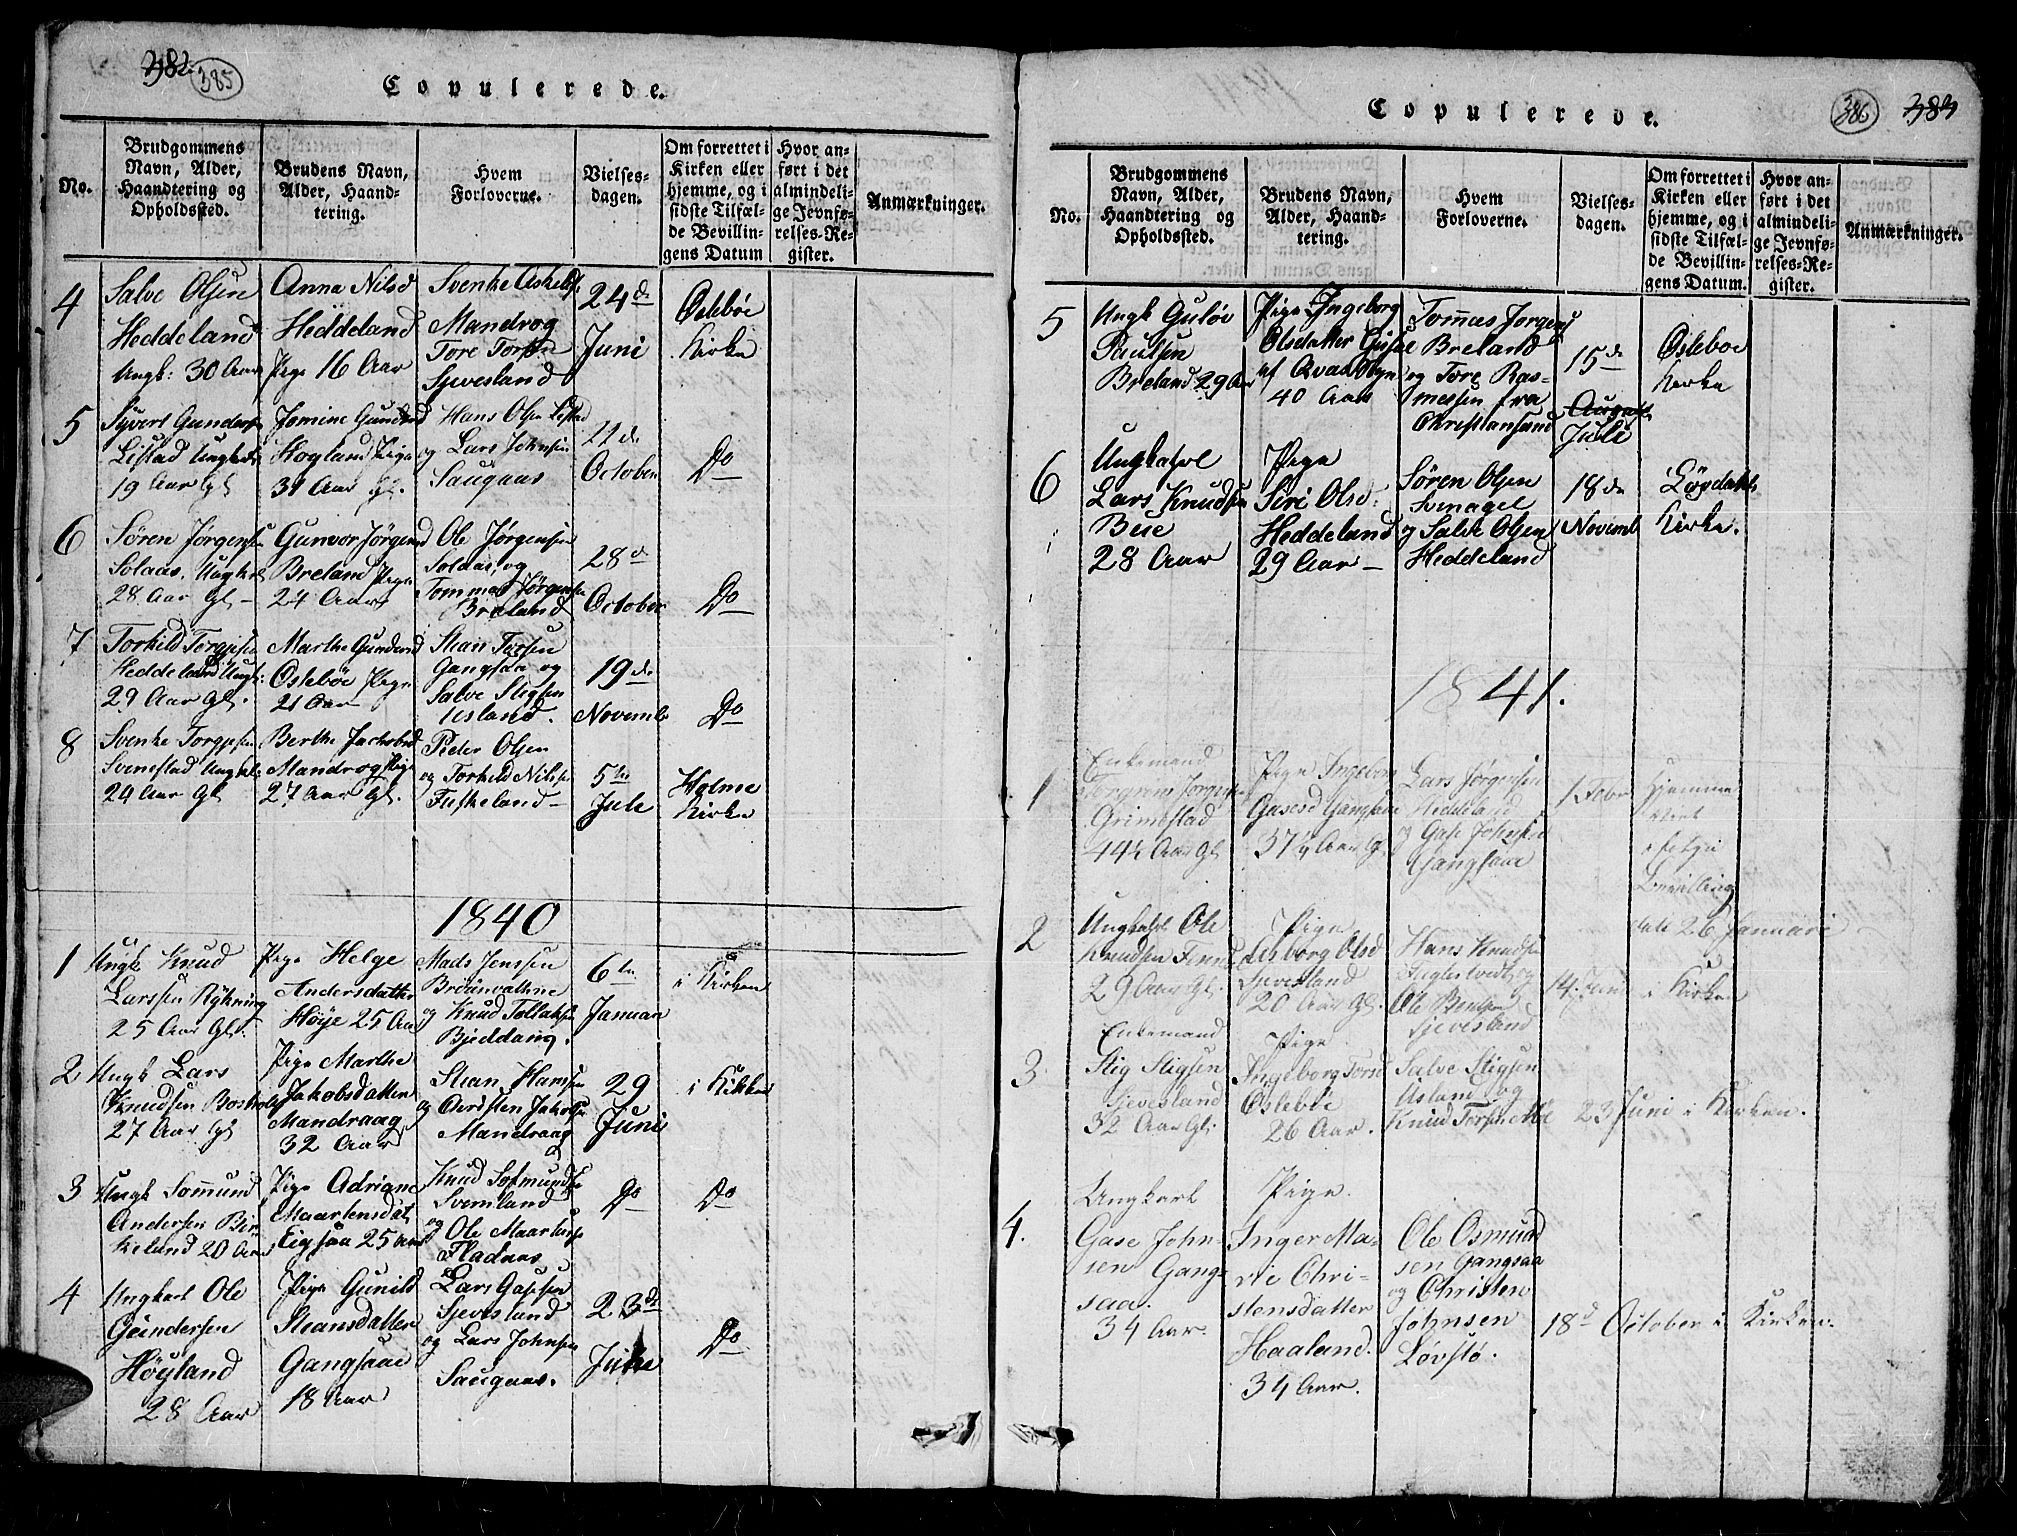 382
385
Copulerede.
No.
Brudgommens
Navn, Alder,
Haandtering og
Opholdssted.
Brudens Navn,
Alder, Haand-
tering.
Hvem
Forloverne.
Vielses-
dagen.
Om forrettet i
Kirken eller
hjemme, og i
sidste Tilfæl-
de Bevillin-
gens Datum
Hvor an-
ført i det
almindeli-
ge Jevnfø-
relses-Re-
gister.
Anmærkninger.
4
Salve Olsen
Heddeland
Ungk: 30 Aar
Anna Nilsd
Heddeland
Pige 16 Aar
Svenke
Mandrog
Tore Torsen
Sjevesland
24de
Juni
Oslebøe
Kirke
5
Syvert Gunders
Listad Ungk
19 Aar Gl
Jomine Gunders
Høgland Pige
31 Aar Gl.
Hans Olsen Listad
og Lars Johnsen
Saugaas
22de
October
Do
6
Søren Jørgensen
Solaas. Ungkel
28 Aar Gl
Gunvor Jørgensd
Breland Pige
24 Aar
Ole Jørgensen
Solaas, og
Tommes Jørgensen
Breland
28de
October
Do
7
Torkild Torgjesen
Heddeland Ungk:
29 Aar Gl.
Marthe Gundersd
Oslebøe Pige
21 Aar
Stian Torsen
Gangsaa og
Salve Stigsen
Uesland.
19de
Novemb
Do
8
Svenke Torgjesen
Svenestad Ungkl
24 Aar Gl
Berthe Jachobsd
Mandrog Pige
27 Aar Gl.
Peder Olsen
og Torkild Nilsen
Fuskeland
5te
Jule
Holme
Kirke
1840
1
Ungk Knud
Larssen Rykning
25 Aar Gl.
Pige Helge
Andersdatter
Høye 25 Aar
Mads Jenssen
Bruunvatne
og Knud Tollaksen
Bjeddang.
6te
Januar
i Kirken
2
Ungk Lars
Knudsen
27 Aar Gl
Pige Marthe
Jakobsdatter
Mandraag
32 Aar
Stian Hanssen
og Jakobsen
Mandraag
29
Juni
i Kirken
3
Ungk Sømund
Andersen Bir
keland 20 Aar
Pige Adriane
Maartensdat
Eigsaa 25 Aar
Knud Sømundsen
Svenland
og Ole Maartens
Fladaas
Do
Do
4
Ungkarl Ole
Gundersen
Høyland
28 Aar
Pige Gunild
Stiansdatter
Gangsaae
18 Aar
Lars Gassen
Sjevesland
og Lars Johnsen
Saugaas.
23de
Jule
Do
386
383
Copulerede.
No.
Brudgommens
Navn, Alder,
Haandtering og
Opholdssted.
Brudens Navn,
Alder, Haand-
tering.
Hvem
Forloverne.
Vielses-
dagen.
Om forrettet i
Kirken eller
hjemme, og i
sidste Tilfæl-
de Bevillin-
gens Datum.
Hvor an-
ført i det
almindeli-
ge Jevnfø-
relses-Re-
gister.
Anmærkninger.
5
Ungk Guløv
Paulsen
Breland 29 Aar
Pige Ingeborg
Olsdatter
af
40 Aar
Tommas Jorgens
Breland
og Tore Ras-
messen fra
Christiansand
15de
August
Juli
Osleboe
Kirke
6
Ungkarl
Lars Knudsen
Bue
28 Aar
Pige
Siri Olsd:
Heddeland
29 Aar
Søren Olsen
Svinagel
og Salve Olsen
Heddeland
18de
Novemb
Løvdahls
Kirke.
1841.
1
Enkemand
Jørgensen
Grimestad
44½ Aar Gl
Pige Ingeborg
Gasesd Gangsaae
37¼ Aar Gl
Lars Jørgensen
Heddeland
og Gase Johnsen
Gangsaae
1 Febr
Hjemme
viet
ifølge
Bevilling
date 26 Januari
2
Ungkarl Ole
Knudsen
29 Aar Gl.
Pige
Aasborg Olsd
Sjevesland
20 Aar Gl.
Hans Knudsen
og
Ole Bentsen
Sjevesland
14 Juni
i Kirken
3
Enkemand
Stig Stigsen
Sjevesland
32 Aar Gl.
Pige
Ingeborg Torsd
Oslebøe
26 Aar.
Salve Stigsen
Usland og
Knud Torsen
23 Juni
i Kirken.
4.
Ungkarl
Gase John-
sen Gang-
saa.
34 Aar.
Pige.
Inger Ma-
rie Chri-
stensdatter
Haaland.
34 Aar.
Ole Osmund
sen Gangsaa
og Christen
Johnsen
Løvstø.
18d October
i Kirken.